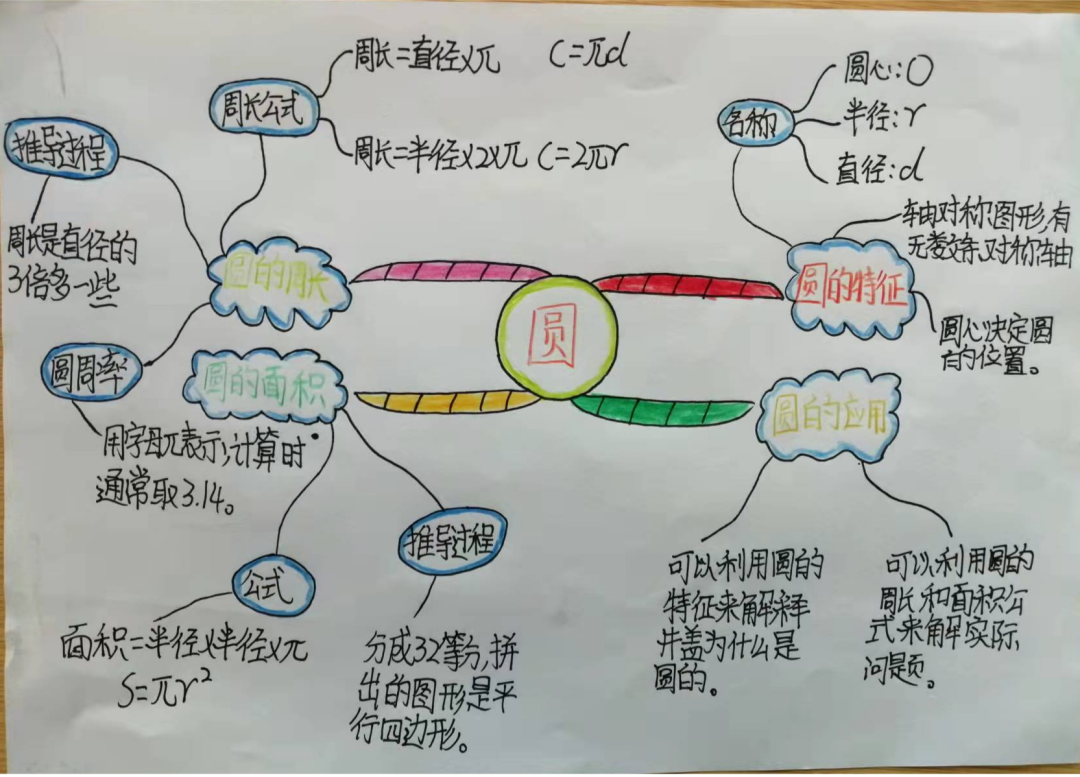 圆
圆的周长
周长公式
周长=直径×π C=πd
周长=半径×2×π C=2πr
推导过程
周长是直径的
3倍多一些
圆周率
用字母π表示,计算时
通常取3.14。
圆的面积
公式
面积=半径×半径×π
S=πr²
推导过程
分成32等分,拼
出的图形是平
行四边形。
圆的特征
名称
圆心:O
半径:r
直径:d
轴对称图形,有
无数条对称轴
圆心决定圆
的位置。
圆的应用
可以利用圆的
特征来解释
井盖为什么是
圆的。
可以利用圆的
周长和面积公
式来解实际
问题。